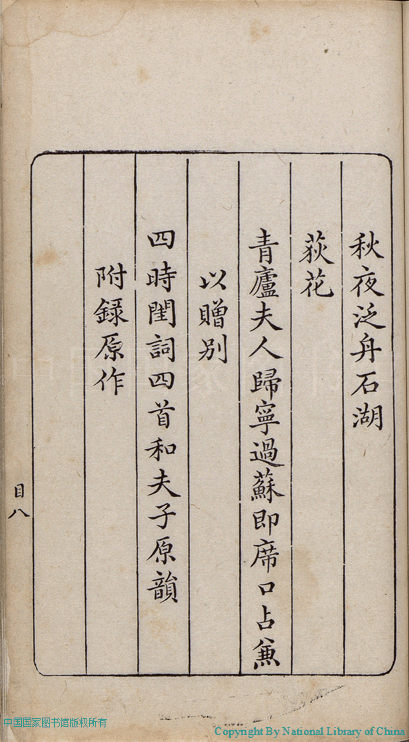 秋夜泛舟石湖
荻花
青廬夫人歸寧過蘇即席口占兼
以贈別
四時閨詞四首和夫子原韻
附録原作
目八
中国国家图书馆版权所有
Copyright By National Library of China